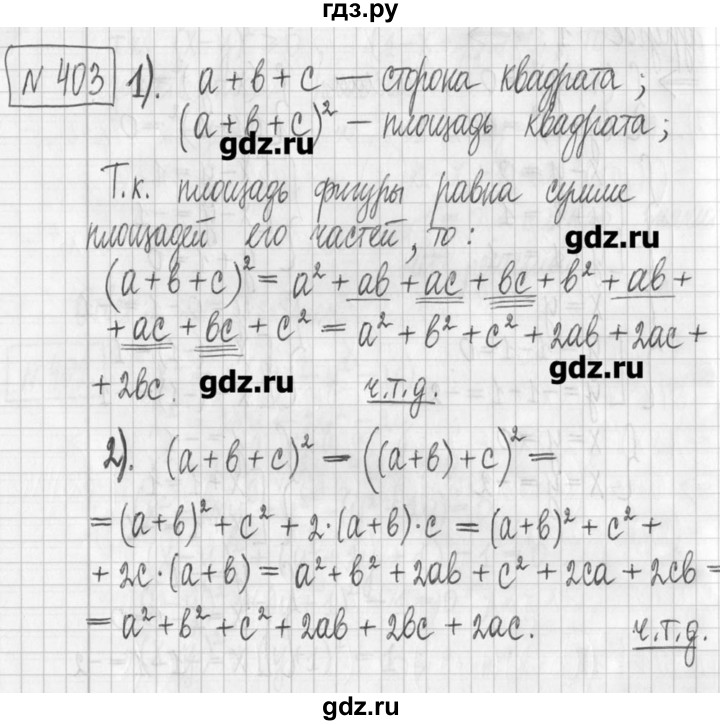 гдз.ру
№ 403 1). a + в + c — сторона квадрата ;
(a + в + c)² — площадь квадрата ;
gdz.ru
Т.к. площадь фигуры равна сумме
площадей его частей, то :
gdz.ru
(a + в + c)² = a² + aв + ac + вc + в² + aв +
+ ac + вc + c² = a² + в² + c² + 2aв + 2ac +
gdz.ru
+ 2вc. ч.т.д.
gdz.ru
2). (a + в + c)² = ((a+в) + c)² =
= (a+в)² + c² + 2·(a+в)·c = (a+в)² + c² +
+ 2c·(a+в) = a² + в² + 2aв + c² + 2ca + 2cв =
= a² + в² + c² + 2aв + 2вc + 2ac. ч.т.д.
gdz.ru